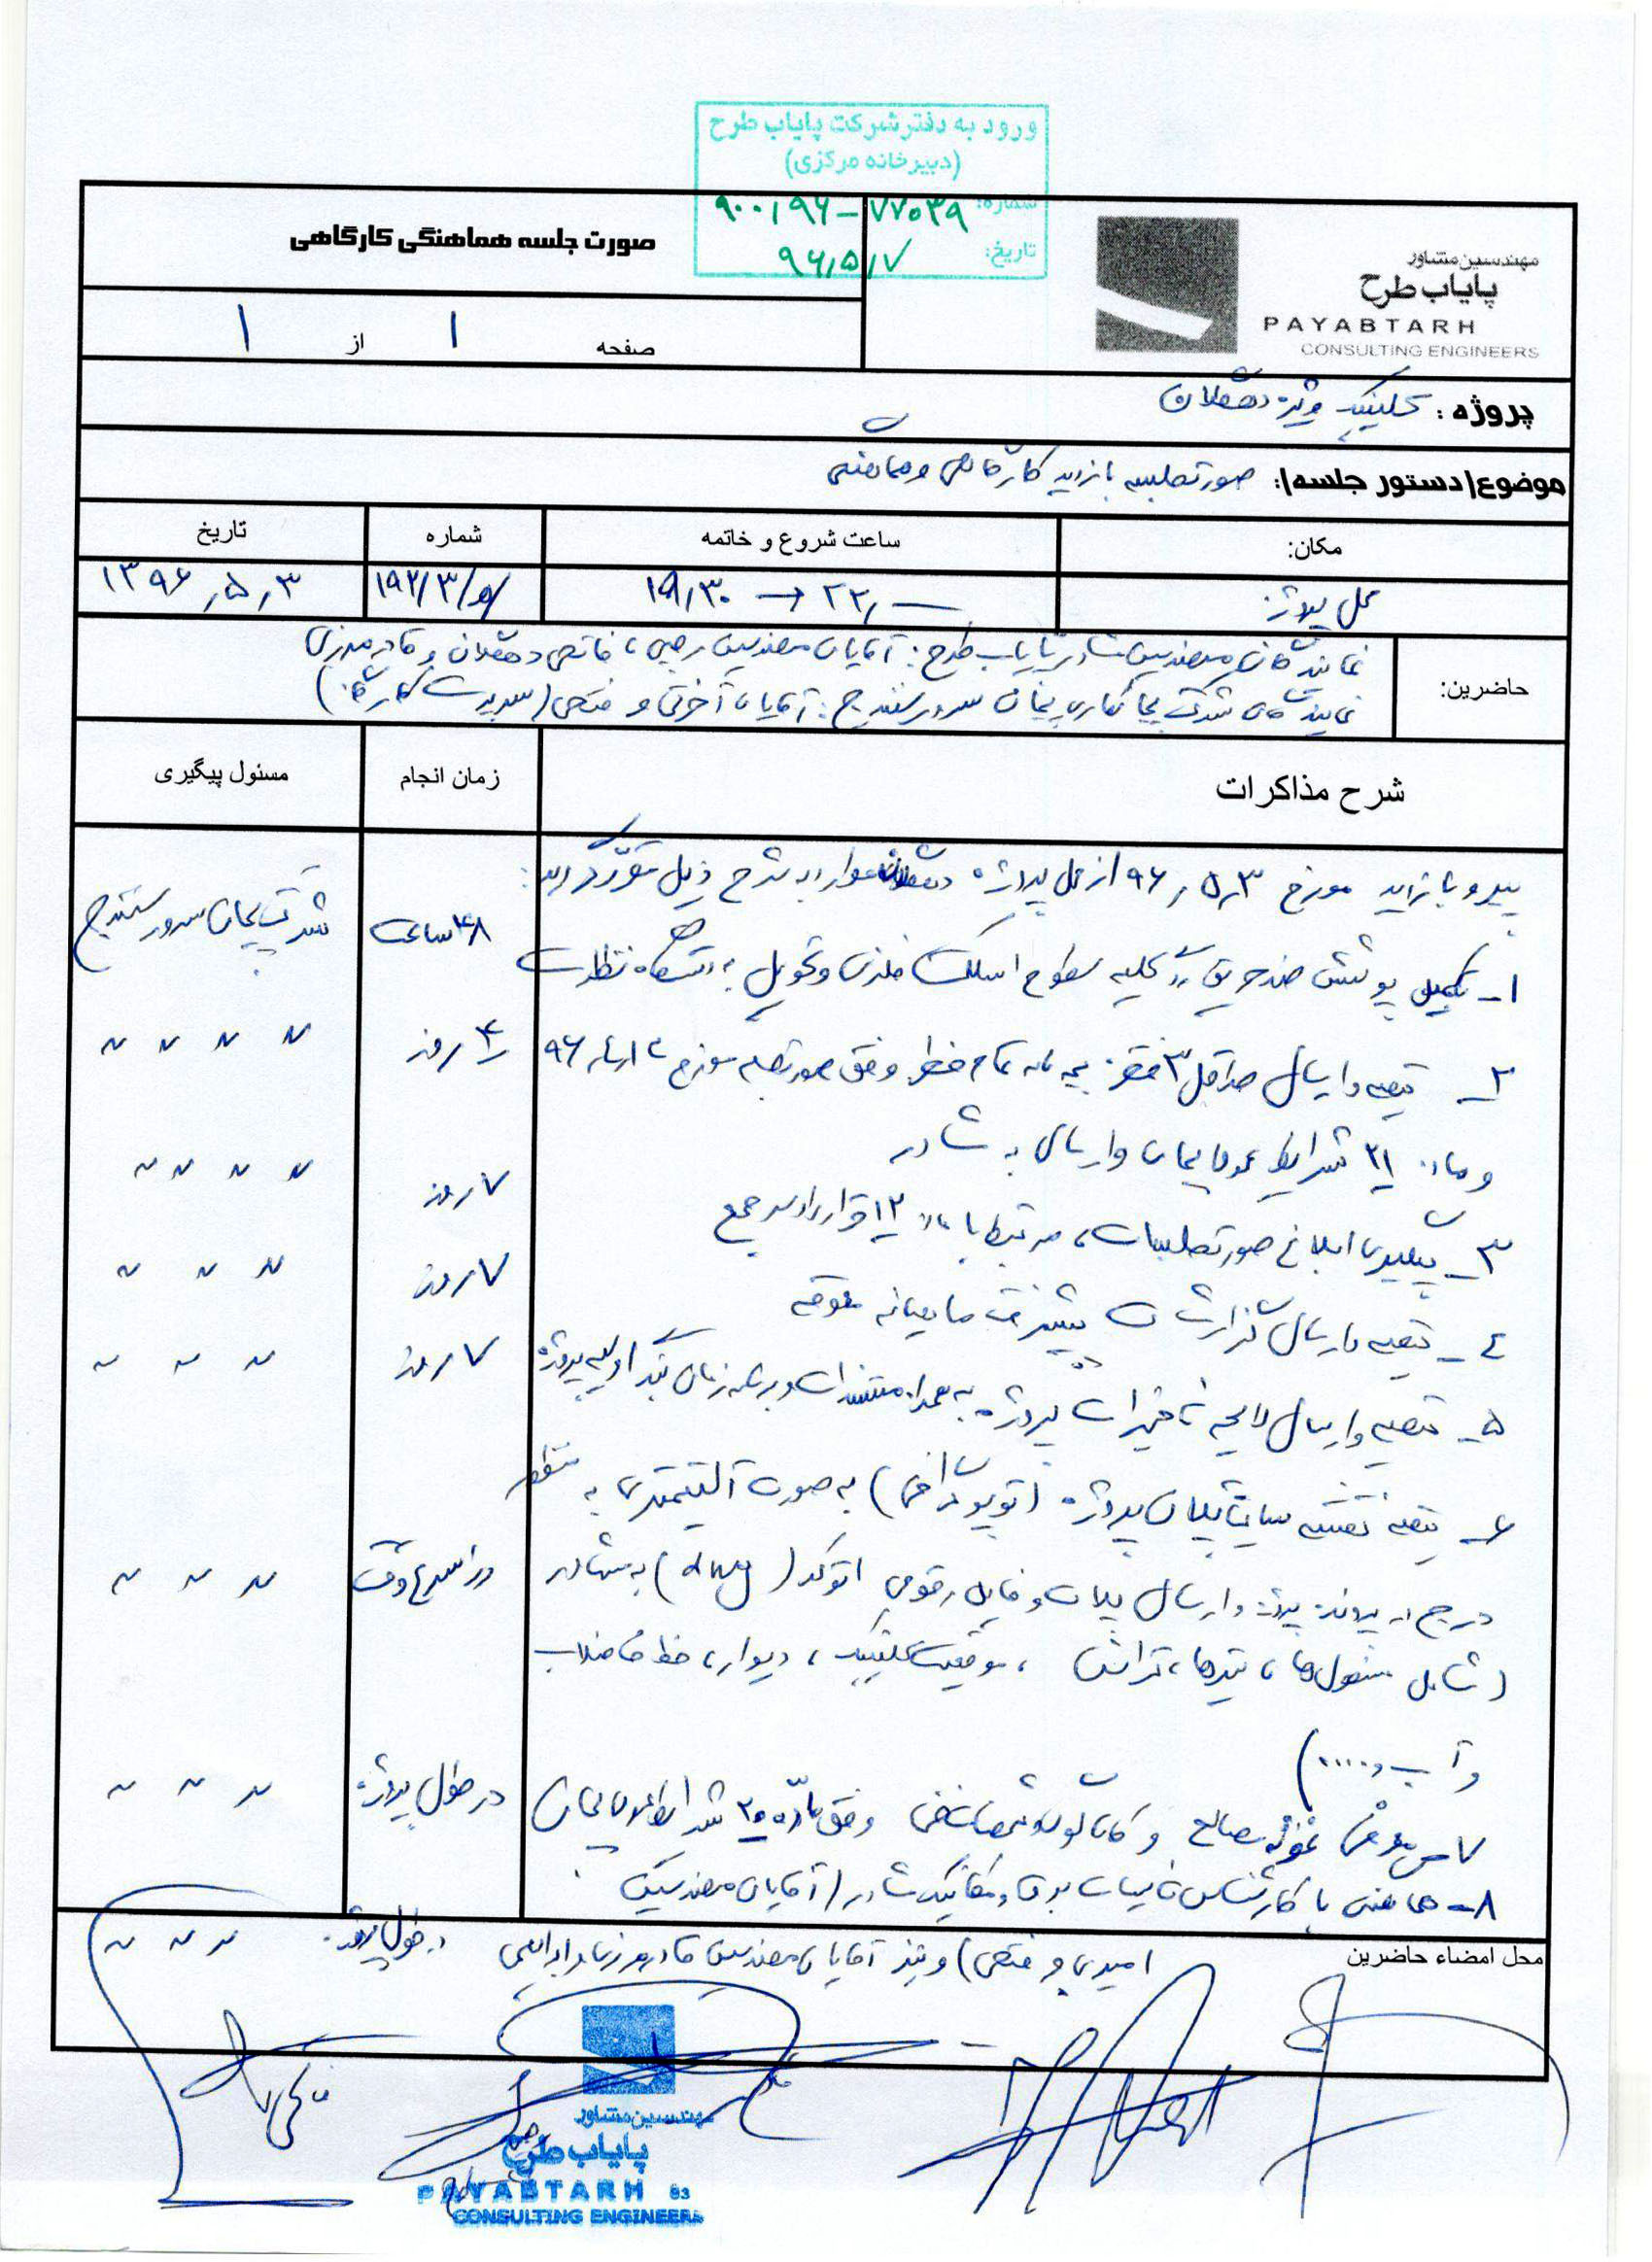 ورود به دفتر شرکت پایاب طرح
(دبیرخانه مرکزی)
شماره: ۹۰۰/۹۶-۷۷۰۳۹
تاریخ: ۹۶/۵/۷
صورت جلسه هماهنگی کارگاهی
صفحه ۱ از ۱
مهندسین مشاور
پایاب طرح
PAYABTARH
CONSULTING ENGINEERS
پروژه : کلینیک ویژه دهگلان
موضوع/دستور جلسه/: صورتجلسه بازدید کارگاهی و هماهنگی
مکان: ساعت شروع و خاتمه شماره تاریخ
محل پروژه ۱۹,۳۰ → ۲۲,— ۱۳۹۶,۵,۳
حاضرین: نمایندگان مهندسین مشاور پایاب طرح : آقایان مهندسین رجبی، فاتحی دهگلان و قادرمرزی
نمایندگان شرکت پیمانکاری پیمان سرور سنندج : آقایان آخرتی و فتحی (سرپرست کارگاه)
شرح مذاکرات زمان انجام مسئول پیگیری
پیرو بازدید مورخ ۹۶,۵,۳ از محل پروژه دهگلان موارد به شرح ذیل مقرر گردید:
۱- تکمیل پوشش ضد حریق کلیه سطوح اسکلت فلزی و تحویل به دستگاه نظارت ۴۸ ساعت شرکت پیمان سرور سنندج
۲- تهیه و ارسال حداقل ۳ فقره بیمه نامه تمام خطر وفق صورتجلسه مورخ ۹۶ روز 〃 〃 〃 〃
و ماده ۲۱ شرایط عمومی پیمان و ارسال به مشاور
۳- پیگیری ابلاغ صورتجلسات، مرتبط با ماده ۱۲ قرارداد سرجمع ۷ روز 〃 〃 〃 〃
٤- تهیه و ارسال گزارشات پیشرفت ماهیانه معوقه ۷ روز 〃 〃 〃
۵- تهیه و ارسال لایحه تاخیرات پروژه به همراه مستندات و برنامه زمان بندی اولیه پروژه ۷ روز 〃 〃 〃
۶- تهیه نقشه سایت پلان پروژه (توپوگرافی) به صورت آلتیمتری به منظور
درج در پرونده پروژه و ارسال پلات و فایل رقومی اتوکد (dwg) به مشاور در اسرع وقت 〃 〃 〃
(شامل منهول ها، تیرها، ترانس، موقعیت کلینیک، دیوار، خط فاضلاب
و آب و.....)
۷- معرفی نمونه مصالح و کاتالوگ و مشخصات فنی وفق ماده ۲۰ شرایط عمومی پیمان در طول پروژه 〃 〃 〃
۸- هماهنگی با کارشناس تاسیسات برق و مکانیک مشاور (آقایان مهندسین
محل امضاء حاضرین امیدی و فتحی) و نیز آقایان مهندسین قادرمرزی و ابراهیمی در طول پروژه 〃 〃 〃
مهندسین مشاور
پایاب طرح
PAYABTARH 03
CONSULTING ENGINEERS